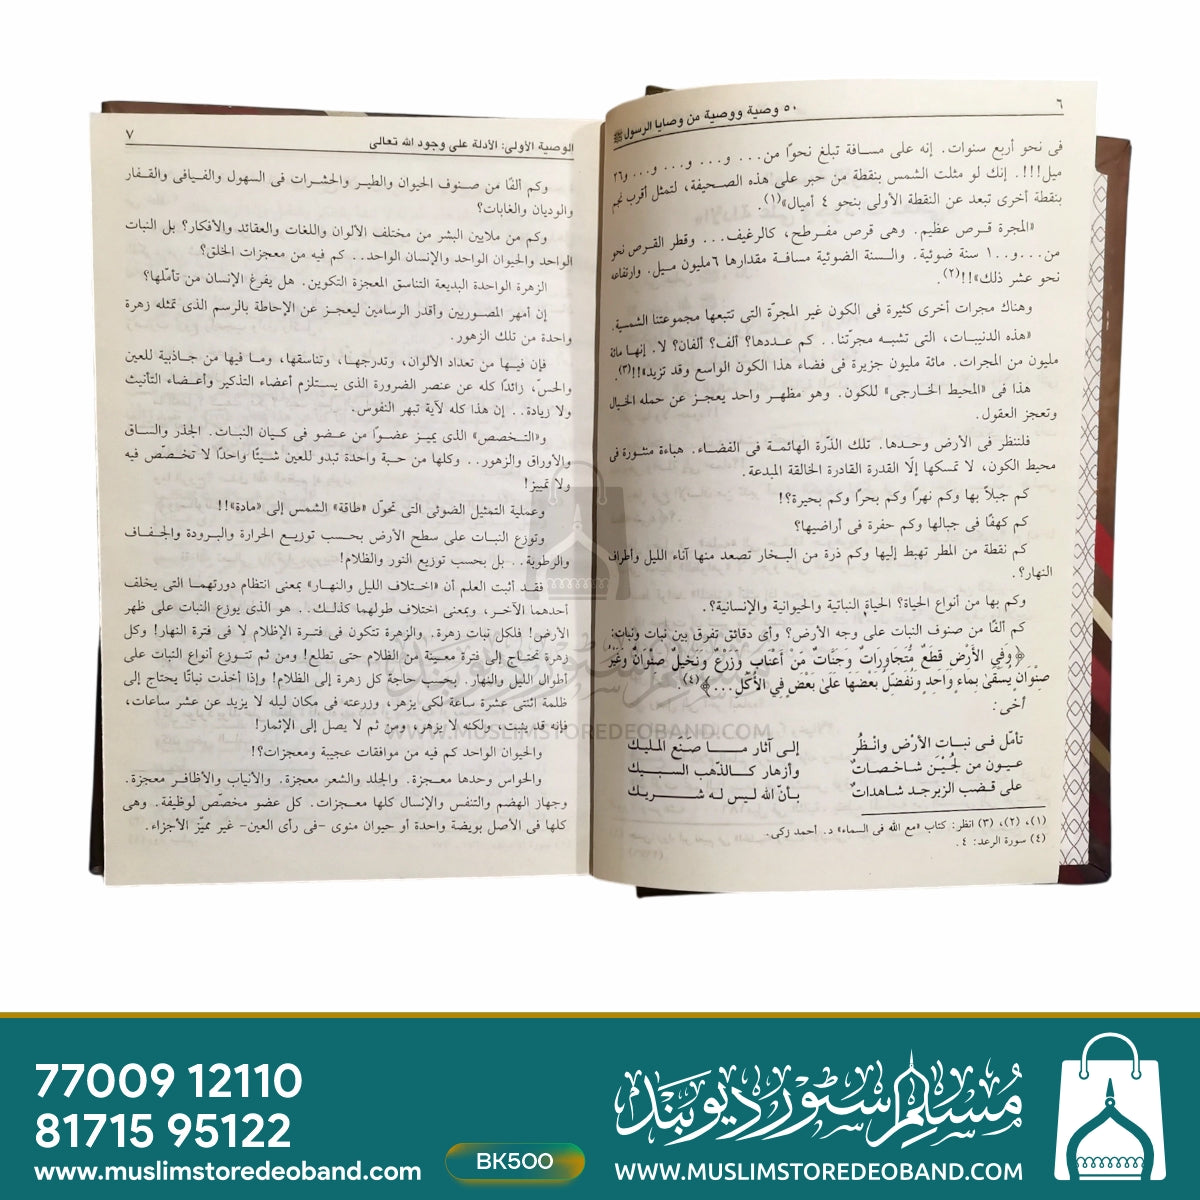 ٦
٥٠ وصية ووصية من وصايا الرسول ﷺ
فى نحو أربع سنوات. إنه على مسافة تبلغ نحوًا من... و... و... و...و٢٦
ميل!!!. إنك لو مثلت الشمس بنقطة من حبر على هذه الصحيفة، لتمثل أقرب نجم
بنقطة أخرى تبعد عن النقطة الأولى بنحو ٤ أميال»(١).
«المجرة قرص عظيم. وهى قرص مفرطح، كالرغيف... وقطر القرص نحو
من...و١٠٠ سنة ضوئية. والسنة الضوئية مسافة مقدارها ٦مليون ميل. وارتفاعه
نحو عشر ذلك»!!(٢).
وهناك مجرات أخرى كثيرة فى الكون غير المجرّة التى تتبعها مجموعتنا الشمسية.
«هذه الدنيبات، التى تشبه مجرّتنا.. كم عددها؟ ألف؟ ألفان؟ لا. إنها مائة
مليون من المجرات. مائة مليون جزيرة فى فضاء هذا الكون الواسع وقد تزيد»!!(٣).
هذا فى «المحيط الخارجى» للكون. وهو مظهر واحد يعجز عن حمله الخيال
وتعجز العقول.
فلننظر فى الأرض وحدها. تلك الذّرة الهائمة فى الفضاء. هباءة منثورة فى
محيط الكون، لا تمسكها إلّا القدرة القادرة الخالقة المبدعة.
كم جبلاً بها وكم نهرًا وكم بحرًا وكم بحيرة؟!
كم كهفًا فى جبالها وكم حفرة فى أراضيها؟
كم نقطة من المطر تهبط إليها وكم ذرة من البخار تصعد منها آناء الليل وأطراف
النهار؟.
وكم بها من أنواع الحياة؟ الحياة النباتية والحيوانية والإنسانية؟.
كم ألفًا من صنوف النبات على وجه الأرض؟ وأى دقائق تفرق بين نبات ونبات:
﴿وَفِي الأَرْضِ قِطَعٌ مُّتَجَاوِرَاتٌ وَجَنَّاتٌ مِّنْ أَعْنَابٍ وَزَرْعٌ وَنَخِيلٌ صِنْوَانٌ وَغَيْرُ
صِنْوَانٍ يُسْقَىٰ بِمَاءٍ وَاحِدٍ وَنُفَضِّلُ بَعْضَهَا عَلَىٰ بَعْضٍ فِي الأُكُلِ...﴾(٤).
أخى:
تأمّل فى نبات الأرْض وانْظُر إلى آثار ما صَنَع المليك
عيون من لُجَيْن شاخصاتٌ وأزهار كالذّهب السبيك
على قضب الزبرجد شاهداتٌ بأنّ الله ليس له شريك
(١)، (٢)، (٣) انظر: كتاب «مع الله فى السماء» د. أحمد زكى.
(٤) سورة الرعد: ٤.
الوصية الأولى: الأدلة على وجود الله تعالى
٧
وكم ألفًا من صنوف الحيوان والطير والحشرات فى السهول والفيافى والقفار
والوديان والغابات؟
وكم من ملايين البشر من مختلف الألوان واللغات والعقائد والأفكار؟ بل النبات
الواحد والحيوان الواحد والإنسان الواحد.. كم فيه من معجزات الخلق؟
الزهرة الواحدة البديعة التناسق المعجزة التكوين. هل يفرغ الإنسان من تأملها؟
إن أمهر المصوريين وأقدر الرسامين ليعجز عن الإحاطة بالرسم الذى تمثله زهرة
واحدة من تلك الزهور.
فإن فيها من تعداد الألوان، وتدرجها، وتناسقها، وما فيها من جاذبية للعين
والحسّ، زائدًا كله عن عنصر الضرورة الذى يستلزم أعضاء التذكير وأعضاء التأنيث
ولا زيادة.. إن هذا كله لآية تبهر النفوس.
و«التخصص» الذى يميز عضوًا من عضو فى كيان النبات. الجذر والساق
والأوراق والزهور.. وكلها من حبة واحدة تبدو للعين شيئًا واحدًا لا تخصّص فيه
ولا تمييز!
وعملية التمثيل الضوئى التى تحوّل «طاقة» الشمس إلى «مادة»!!
وتوزع النبات على سطح الأرض بحسب توزيع الحرارة والبرودة والجفاف
والرطوبة.. بل بحسب توزيع النور والظلام!
فقد أثبت العلم أن «اختلاف الليل والنهار» بمعنى انتظام دورتهما التى يخلف
أحدهما الآخر، وبمعنى اختلاف طولهما كذلك.. هو الذى يوزع النبات على ظهر
الأرض! فلكل نبات زهرة. والزهرة تتكون فى فترة الإظلام لا فى فترة النهار! وكل
زهرة تحتاج إلى فترة معينة من الظلام حتى تطلع! ومن ثم تتوزع أنواع النبات على
أطوال الليل والنهار. بحسب حاجة كل زهرة إلى الظلام! وإذا أخذت نباتًا يحتاج إلى
ظلمة اثنتى عشرة ساعة لكى يزهر، وزرعته فى مكان ليله لا يزيد عن عشر ساعات،
فإنه قد ينبت، ولكنه لا يزهر، ومن ثم لا يصل إلى الإثمار!
والحيوان الواحد كم فيه من موافقات عجيبة ومعجزات؟!
والحواس وحدها معجزة. والجلد والشعر معجزة. والأنياب والأظافر معجزة.
وجهاز الهضم والتنفس والإنسال كلها معجزات. كل عضو مخصّص لوظيفة. وهى
كلها فى الأصل بويضة واحدة أو حيوان منوى -فى رأى العين- غير مميّز الأجزاء.
مسلم سٹور دیوبند
WWW.MUSLIMSTOREDEOBAND.COM
77009 12110
81715 95122
www.muslimstoredeoband.com
BK500
مسلم سٹور دیوبند
WWW.MUSLIMSTOREDEOBAND.COM